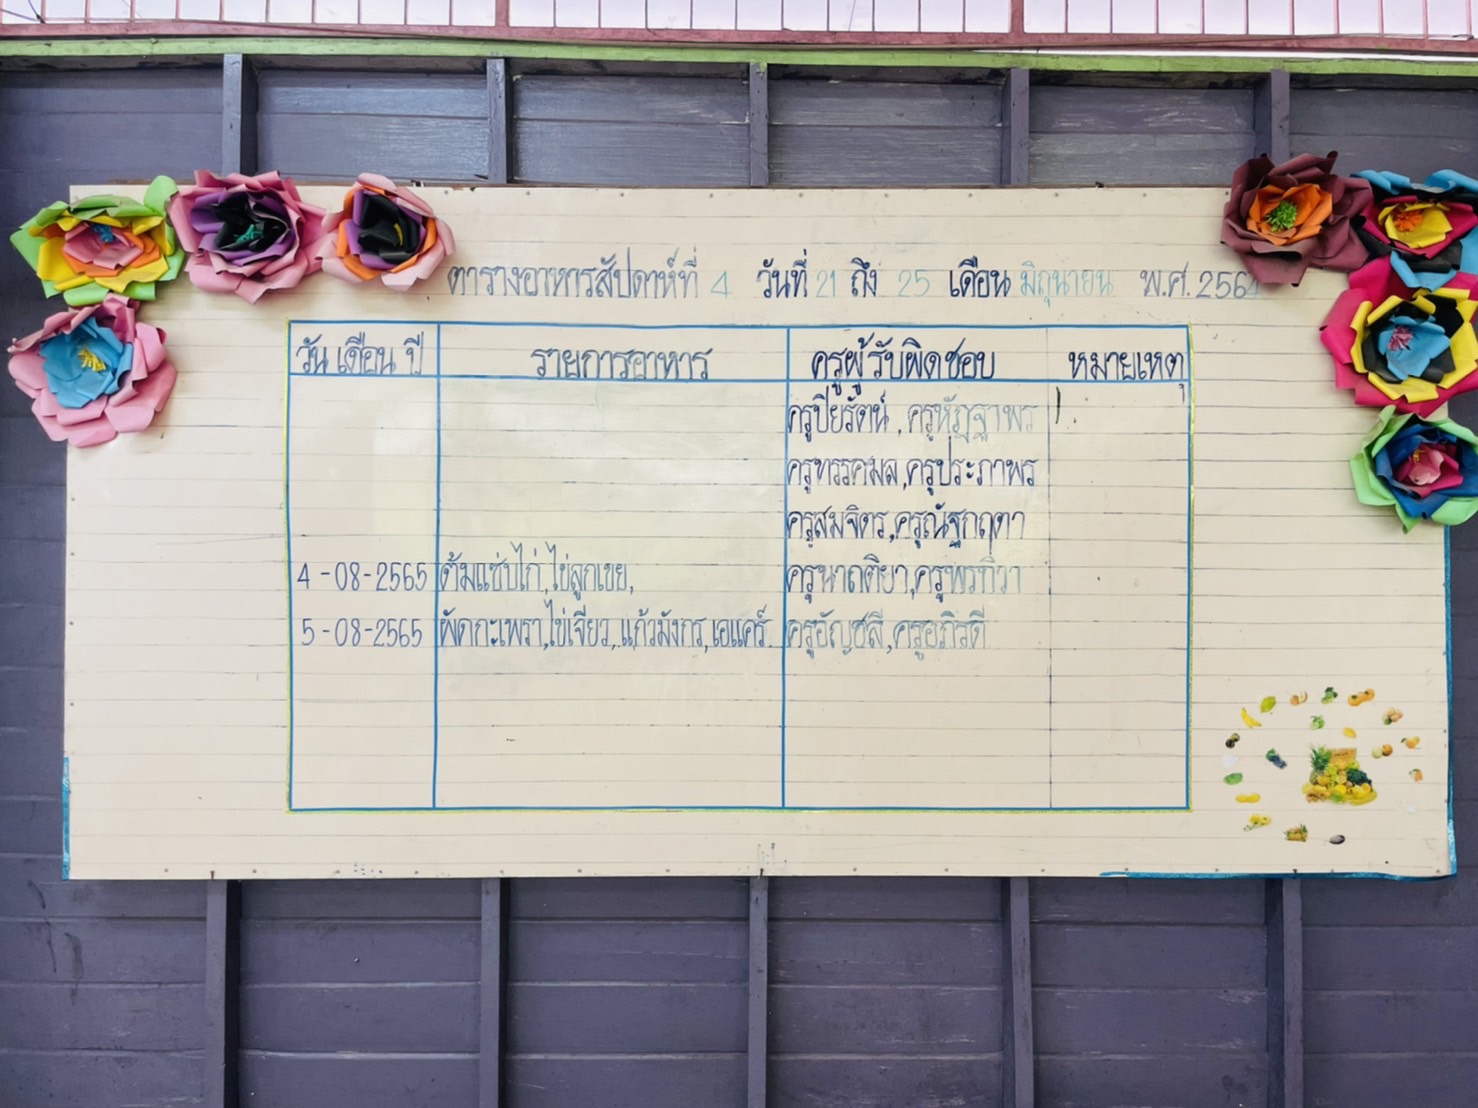 ตารางอาหารสัปดาห์ที่ 4 วันที่ 21 ถึง 25 เดือน มิถุนายน พ.ศ. 2564
วัน เดือน ปี รายการอาหาร ครูผู้รับผิดชอบ หมายเหตุ
ครูปิยรัตน์ , ครูหัฏฐาพร
ครูทรรศมล,ครูประภาพร
ครูสมจิตร,ครูณัฐกฤตา
4-08-2565 ต้มแซ่บไก่,ไข่ลูกเขย, ครูนาถติยา,ครูพรทิวา
5-08-2565 ผัดกะเพรา,ไข่เจียว,แก้วมังกร,เอแคร์ ครูอัญชลี,ครูอภิรดี